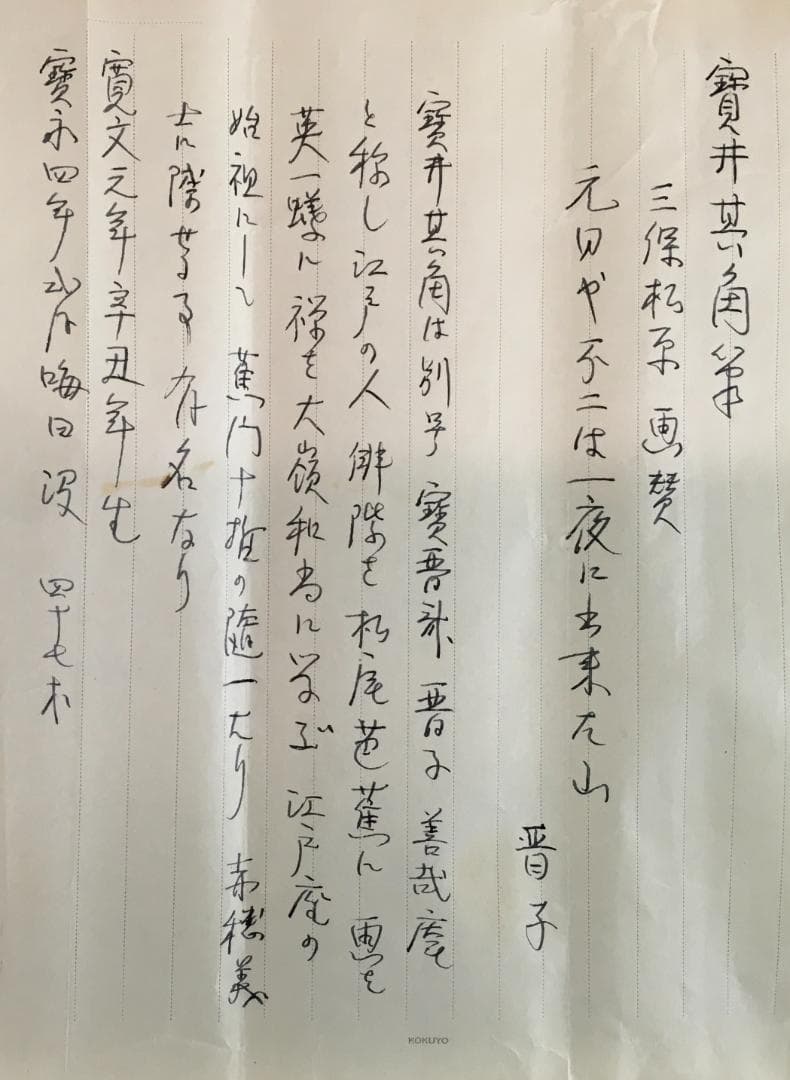 寶井其角筆
三保松原画賛
元日や不二は一夜に出来た山
晋子
寶井其角は別号 寶晋斎 晋子 善哉庵
と称し江戸の人 俳諧を松尾芭蕉に 画を
英一蝶に 禅を大嶺和尚に学ぶ 江戸座の
始祖にして 蕉門十哲の随一たり 赤穂義
士に際せる事有名なり
寛文元年辛丑年生
寶永四年弐月晦日没 四十七才
KOKUYO